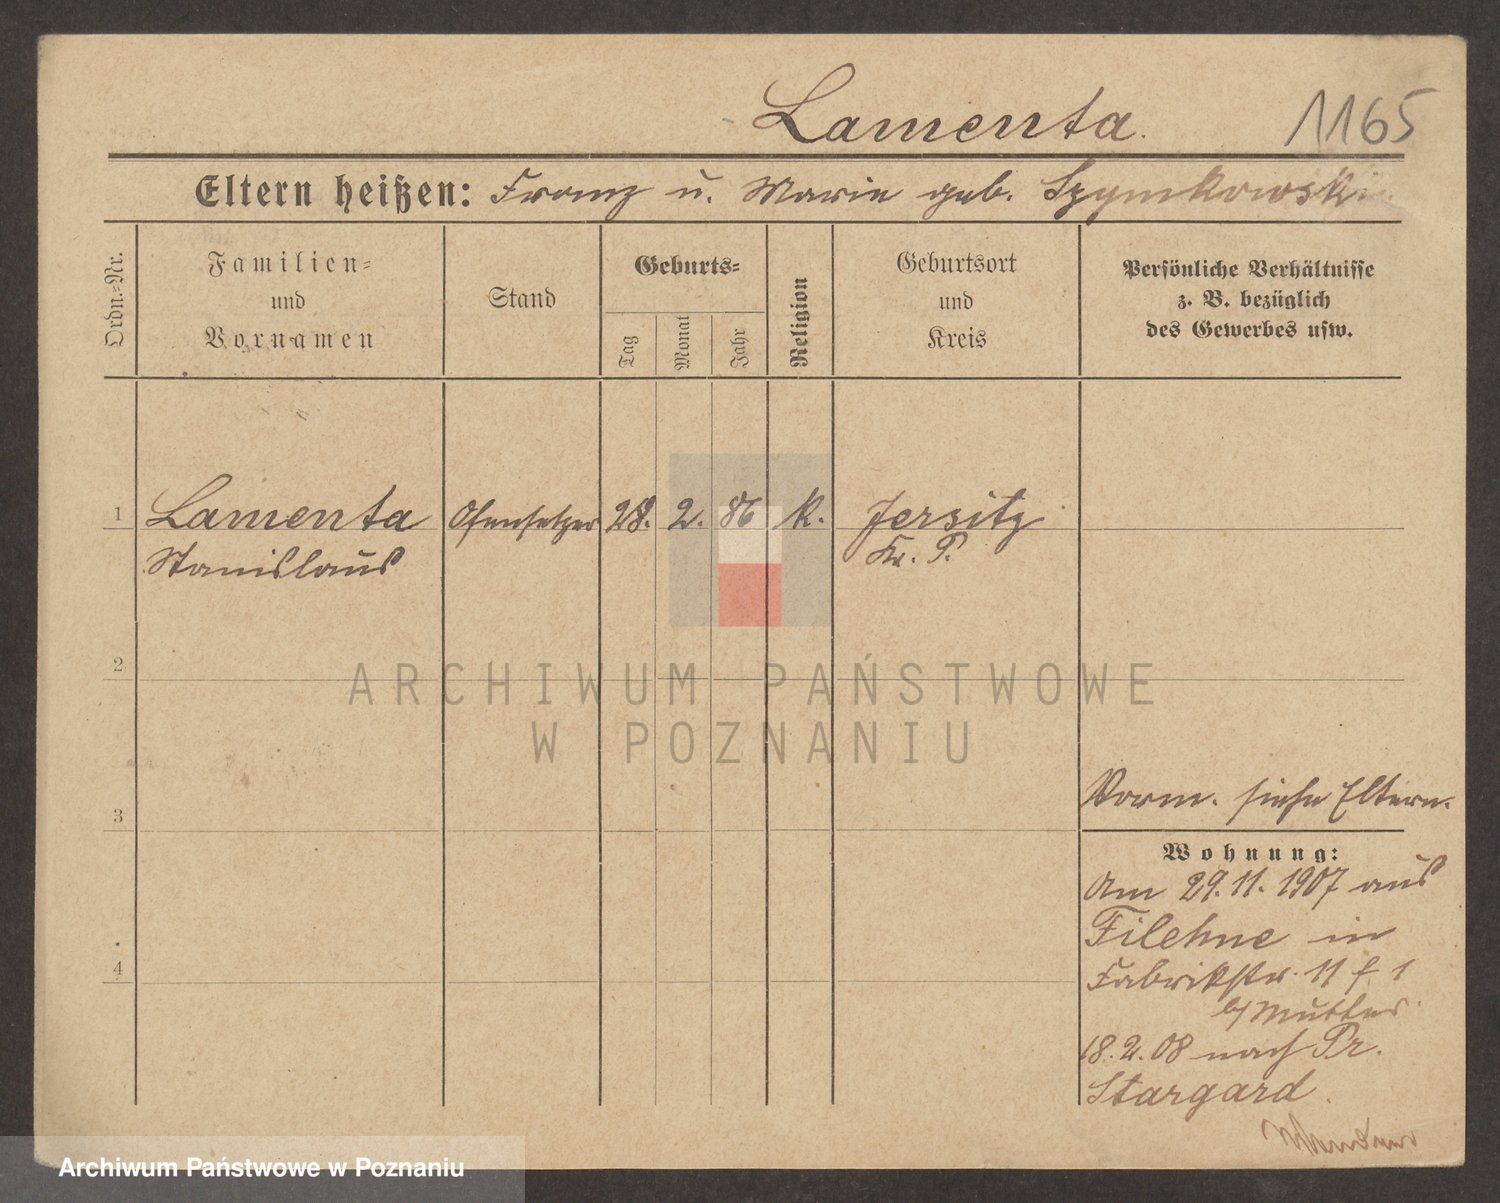 Lamenta. 1165
Eltern heißen: Franz u. Marie geb. Szymkowski.
Ordn.-Nr.
Familien-
und
Vornamen
Stand
Geburts-
Tag
Monat
Jahr
Religion
Geburtsort
und
Kreis
Persönliche Verhältnisse
z. B. bezüglich
des Gewerbes usw.
1 Lamenta Ofensetzer 28. 2. 86 k. Jersitz
Stanislaus Kr. P.
2
ARCHIWUM PAŃSTWOWE
W POZNANIU
Vorm. siehe Eltern.
3
Wohnung:
Am 29.11.1907 aus
Filehne in
4
Fabrikstr. 11 f 1
b/ Mutter.
18.2.08 nach Pr.
Stargard.
Archiwum Państwowe w Poznaniu